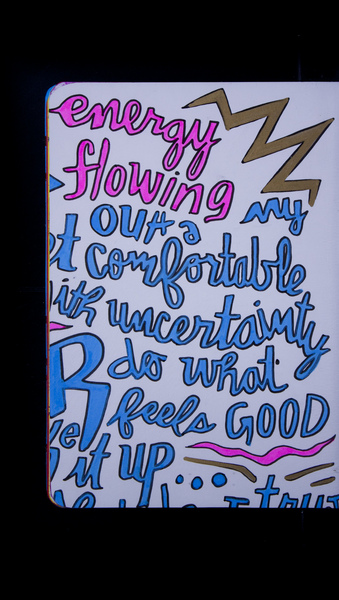 energy
flowing
outta my
comfortable
uncertainty
R do what
feels GOOD
it up...